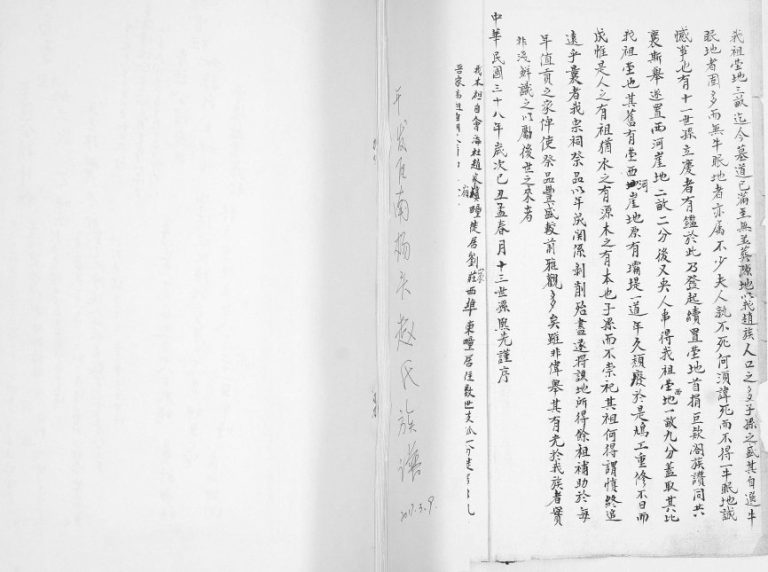 我祖塋地三畝迄今墓道已滿至無蓋葬隙地以我趙族人口之多子孫之盛其自選牛
眠地者固多而無牛眠地者亦屬不少夫人孰不死何須諱死而不得一牛眠地誠
憾事也有十一世孫立慶者有鑑於此乃登起續置塋地首捐巨款閤族讚同共
襄斯舉遂置西河崖地二畝二分後又央人事得我祖塋西地一畝九分蓋取其比
我祖塋也其舊有塋西河崖地原有壩堤一道年久頹廢於是鳩工重修不日而
成惟是人之有祖猶水之有源木之有本也子孫而不崇祀其祖何得謂慎終追
遠乎曩者我宗祠祭品以年荒關係剝削殆盡遂將該地所得餘租補助於每
年值貢之家俾使祭品豐盛較前雅觀多矣雖非偉舉其有光於我族者實
非淺鮮識之以勵後世之來者
中華民國三十八年歲次己丑孟春月十三世孫熙光謹序
我本祖自會海社趙家疃徙居劉家莊西埠東疃居住數世支瓜一分
南楊家趙氏族譜
2017.3.9.